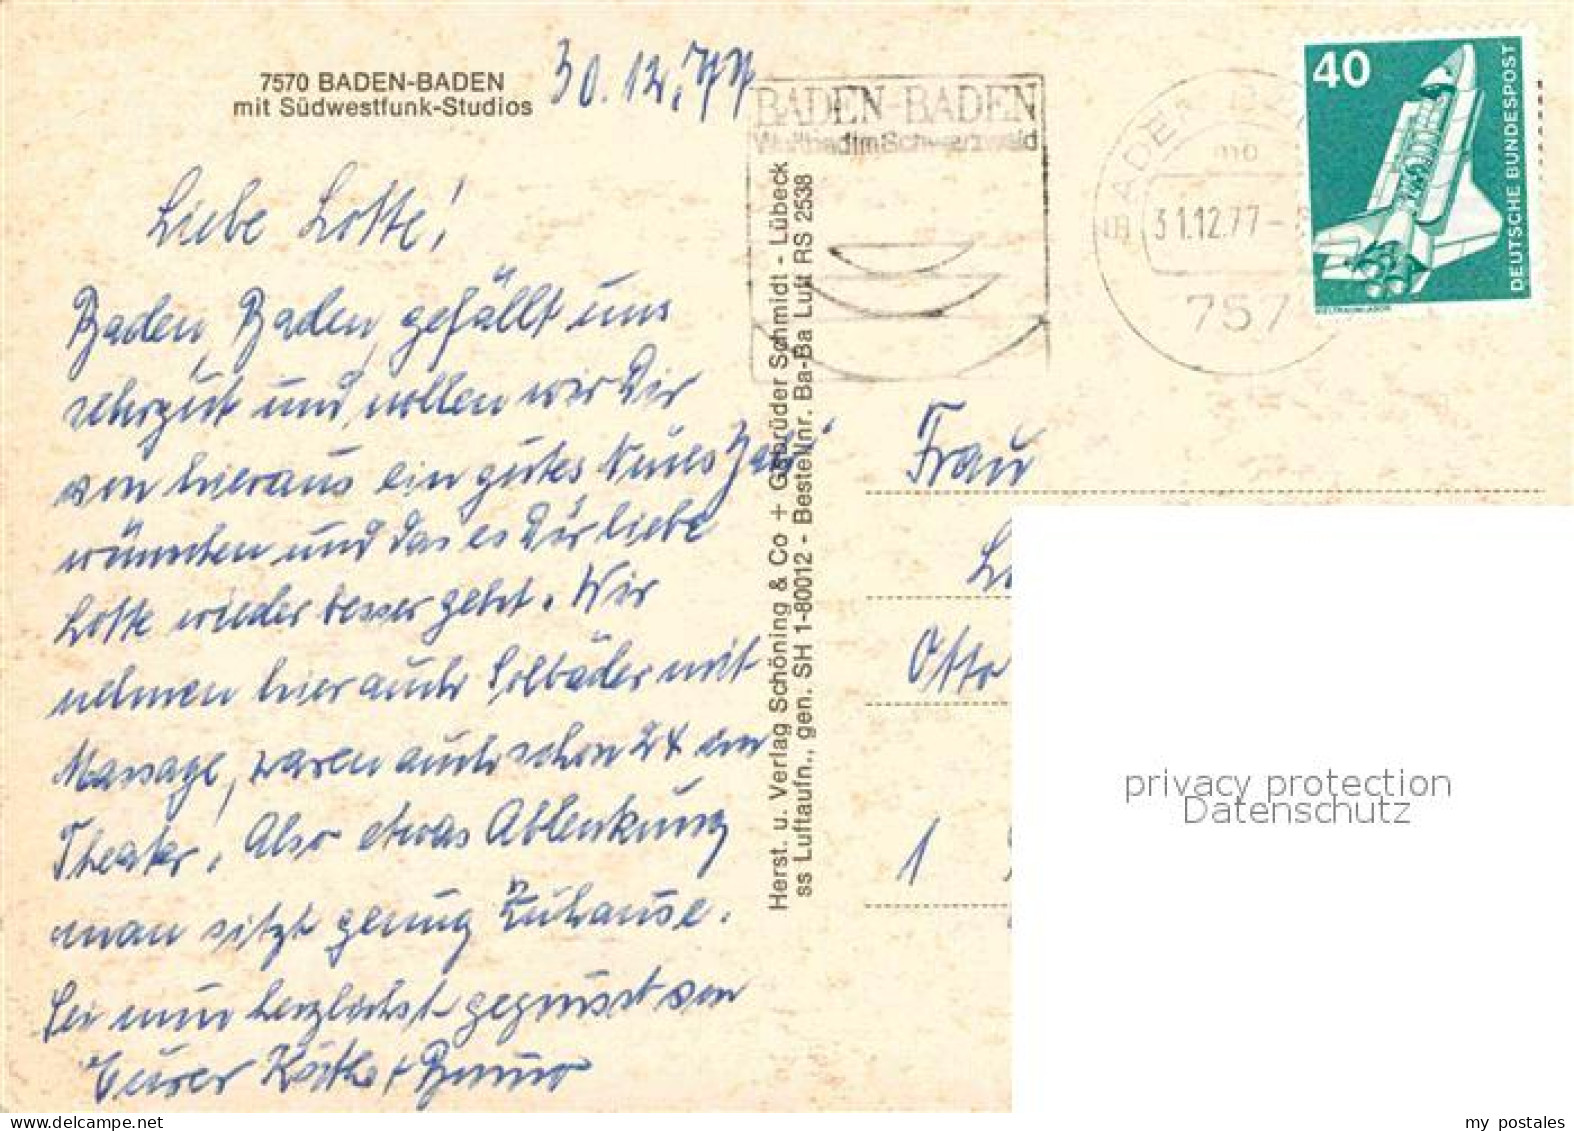 7570 BADEN-BADEN
mit Südwestfunk-Studios
30.12.77
Liebe Lotte!
Baden, Baden, gefällt uns
sehr gut und wollen wir Dir
von hieraus ein gutes Neues Jahr
wünschen und das es Dir liebe
Lotte wieder besser geht. Wir
nehmen hier auch Solbäder mit
Massage, waren auch schon 2x im
Theater. Also etwas Ablenkung
man sitzt genug Zuhause.
Sei nun herzlichst gegrüsst von
Eurer Käthe + Bruno
Herst. u. Verlag Schöning & Co + Gebrüder Schmidt - Lübeck
ss Luftaufn., gen. SH 1-80012 - Bestellnr. Ba-Ba Luft RS 2538
BADEN-BADEN
Weltbad im Schwarzwald
BADEN
mo
31.12.77-
757
40
DEUTSCHE BUNDESPOST
WELTRAUMLABOR
Frau
Otto
1
privacy protection
Datenschutz
my postales